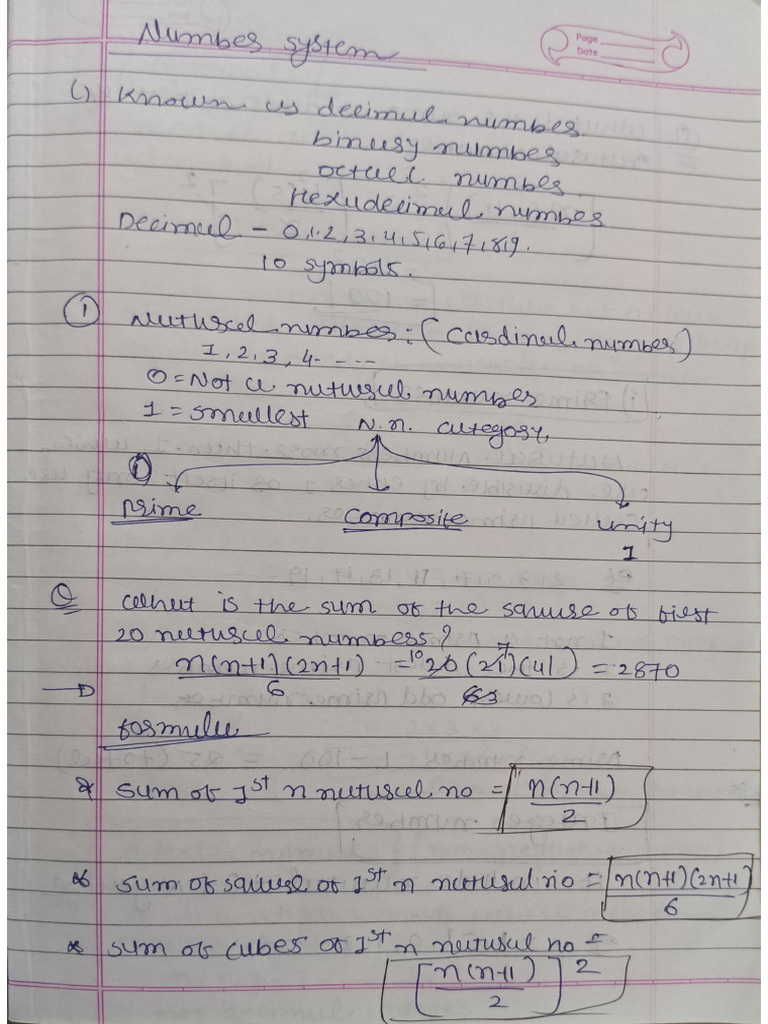 Number system
Page
Date
() Known as decimal number
binary number
octal number
Hexadecimal number
Decimal - 0,1,2,3,4,5,6,7,8,9.
10 symbols.
① Natural number: (Cardinal number)
1, 2, 3, 4- ----
0 = Not a natural number
1 = smallest N.n. category
①
Prime Composite unity
1
Q What is the sum of the square of first
20 natural numbers?
n(n+1)(2n+1) = 10 20 (21) 7 (41) = 2870
6 63
formula
* sum of 1st n natural no = n(n+1)
2
* sum of square of 1st n natural no = n(n+1)(2n+1)
6
* sum of cubes of 1st n natural no =
[n(n+1)]2
2